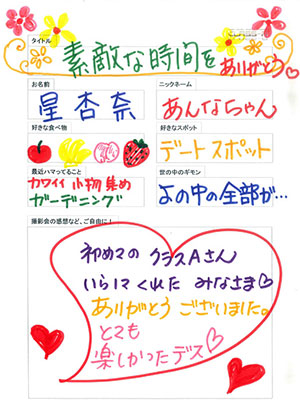 タイトル
素敵な時間を
ありがとう♡
お名前
星杏奈
ニックネーム
あんなちゃん
好きな食べ物
好きなスポット
デートスポット
最近ハマってること
カワイイ小物集め
ガーデニング
世の中のギモン
よの中の全部が…
撮影会の感想など、ご自由に!
初めての クラスAさん
いらしてくれた みなさま♡
ありがとう ございました。
とても
楽しかったデス♡